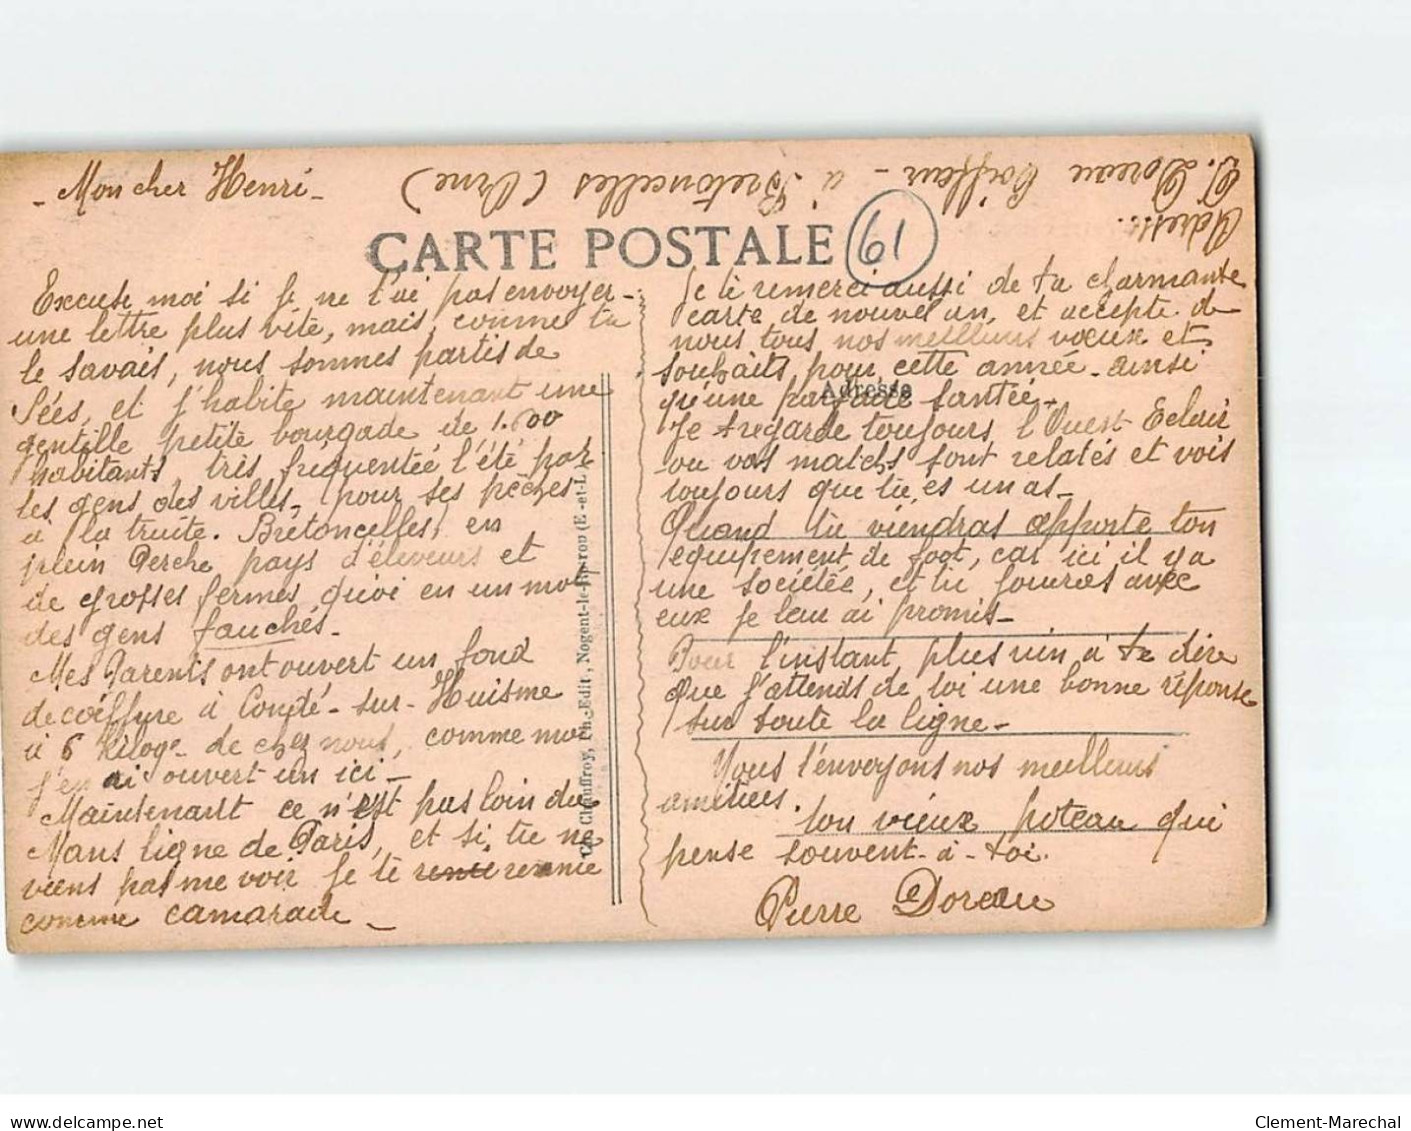 - Mon cher Henri -
Adresse.
P. Doreau Coiffeur - à Bretoncelles (Orne)
CARTE POSTALE
61
Excuse moi si je ne t'ai pas envoyer
une lettre plus vite, mais comme tu
le savais, nous sommes partis de
Sées, et j'habite maintenant une
gentille petite bourgade de 1.600
habitants, très fréquentée l'été par
les gens des villes, pour ses pêches
à la truite. Bretoncelles, en
plein Perche pays d'éleveurs et
de grosses fermes, quoi en un mot
des gens fauchés.
Mes Parents ont ouvert un fond
de coiffure à Condé-sur-Huisme
à 6 kilog. de chez nous, comme moi
j'en ai ouvert un ici -
Maintenant ce n'est pas loin du
Mans ligne de Paris, et si tu ne
viens pas me voir je te renie
comme camarade -
Je te remerci aussi de ta charmante
carte de nouvel an, et accepte de
nous tous nos meilleurs vœux et
souhaits pour cette année - ainsi
Adresse
qu'une parfaite santée -
Je regarde toujours l'Ouest Eclair
ou vos matchs sont relatés et vois
toujours que tu es un as -
Quand tu viendras apporte ton
équipement de foot, car ici il y a
une sociétée, et tu joueras avec
eux je leur ai promis -
Pour l'instant, plus rien à te dire
que j'attends de toi une bonne réponse
sur toute la ligne -
Nous t'envoyons nos meilleurs
amitiés.
ton vieux poteau qui
pense souvent - à - toi.
Pierre Doreau
Chauffroy, Ph.-Edit., Nogent-le-Rotrou (E.-et-L.)
www.delcampe.net
Clement-Marechal